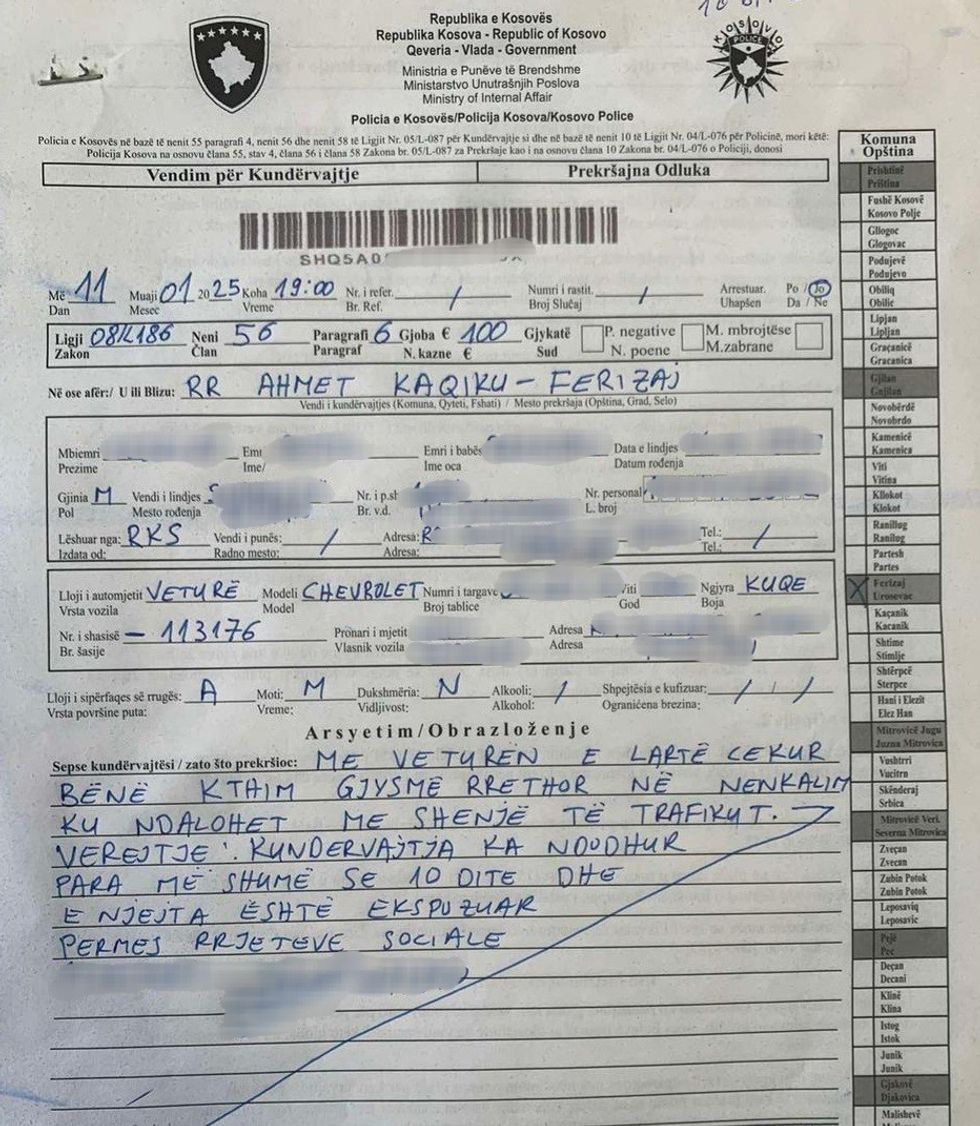 Republika e Kosovës
Republika Kosova - Republic of Kosovo
Qeveria - Vlada - Government
Ministria e Punëve të Brendshme
Ministarstvo Unutrašnjih Poslova
Ministry of Internal Affair
Policia e Kosovës/Policija Kosova/Kosovo Police
KOSOVO
POLICE
Policia e Kosovës në bazë të nenit 55 paragrafi 4, nenit 56 dhe nenit 58 të Ligjit Nr. 05/L-087 për Kundërvajtje si dhe në bazë të nenit 10 të Ligjit Nr. 04/L-076 për Policinë, mori këtë:
Policija Kosova na osnovu člana 55, stav 4, člana 56 i člana 58 Zakona br. 05/L-087 za Prekršaje kao i na osnovu člana 10 Zakona br. 04/L-076 o Policiji, donosi
Vendim për Kundërvajtje Prekršajna Odluka
SHQ5A0
Më 11 Muaji 01 2025 Koha 19:00 Nr. i refer. / Numri i rastit. / Arrestuar. Po / Jo
Dan Mesec Vreme Br. Ref. Broj Slučaj Uhapšen Da / Ne
Ligji 08/L186 Neni 56 Paragrafi 6 Gjoba € 100 Gjykatë P. negative M. mbrojtëse
Zakon Član Paragraf N. kazne € Sud N. poene M.zabrane
Në ose afër:/ U ili Blizu: RR AHMET KAQIKU - FERIZAJ
Vendi i kundërvajtjes (Komuna, Qyteti, Fshati) / Mesto prekršaja (Opština, Grad, Selo)
Mbiemri Emri Emri i babës Data e lindjes
Prezime Ime/ Ime oca Datum rođenja
Gjinia M Vendi i lindjes Nr. i p.sh Nr. personal
Pol Mesto rođenja Br. v.d. L. broj
Lëshuar nga: RKS Vendi i punës: / Adresa: R Tel.: /
Izdata od: Radno mesto: Adresa: Tel.:
Lloji i automjetit VETURË Modeli CHEVROLET Numri i targave Viti Ngjyra KUQE
Vrsta vozila Model Broj tablice God Boja
Nr. i shasisë - 113176 Pronari i mjetit Adresa
Br. šasije Vlasnik vozila Adresa
Lloji i sipërfaqes së rrugës: A Moti: M Dukshmëria: N Alkooli: / Shpejtësia e kufizuar: / / /
Vrsta površine puta: Vreme: Vidljivost: Alkohol: Ograničena brezina:
Arsyetim/Obrazloženje
Sepse kundërvajtësi / zato što prekršioc: ME VETUREN E LARTË CEKUR
BËNË KTAIM GJYSMË RRETHOR NË NENKALIM
KU NDALOHET ME SHENJË TË TRAFIKUT.
VEREJTJE: KUNDERVAJTJA KA NDODHUR
PARA MË SHUMË SE 10 DITE DHE
E NJEJTA ËSHTË EKSPUZUAR
PERMES RRJETEVE SOCIALE
Komuna
Opština
Prishtinë
Priština
Fushë Kosovë
Kosovo Polje
Gllogoc
Glogovac
Podujevë
Podujevo
Obiliq
Obilic
Lipjan
Lipljan
Graçanicë
Gracanica
Gjilan
Gnjilane
Novobërdë
Novobrdo
Kamenicë
Kamenica
Viti
Vitina
Kllokot
Klokot
Ranillug
Ranilug
Partesh
Partes
X Ferizaj
Urosevac
Kaçanik
Kacanik
Shtime
Stimlje
Shtërpcë
Sterpce
Hani i Elezit
Elez Han
Mitrovicë Jugu
Juzna Mitrovica
Vushtrri
Vucitrn
Skënderaj
Srbica
Mitrovicë Veri.
Severna Mitrovica
Zveçan
Zvecan
Zubin Potok
Zubin Potok
Leposaviq
Leposavic
Pejë
Pec
Deçan
Decani
Klinë
Klina
Istog
Istok
Junik
Junik
Gjakovë
Djakovica
Malishevë